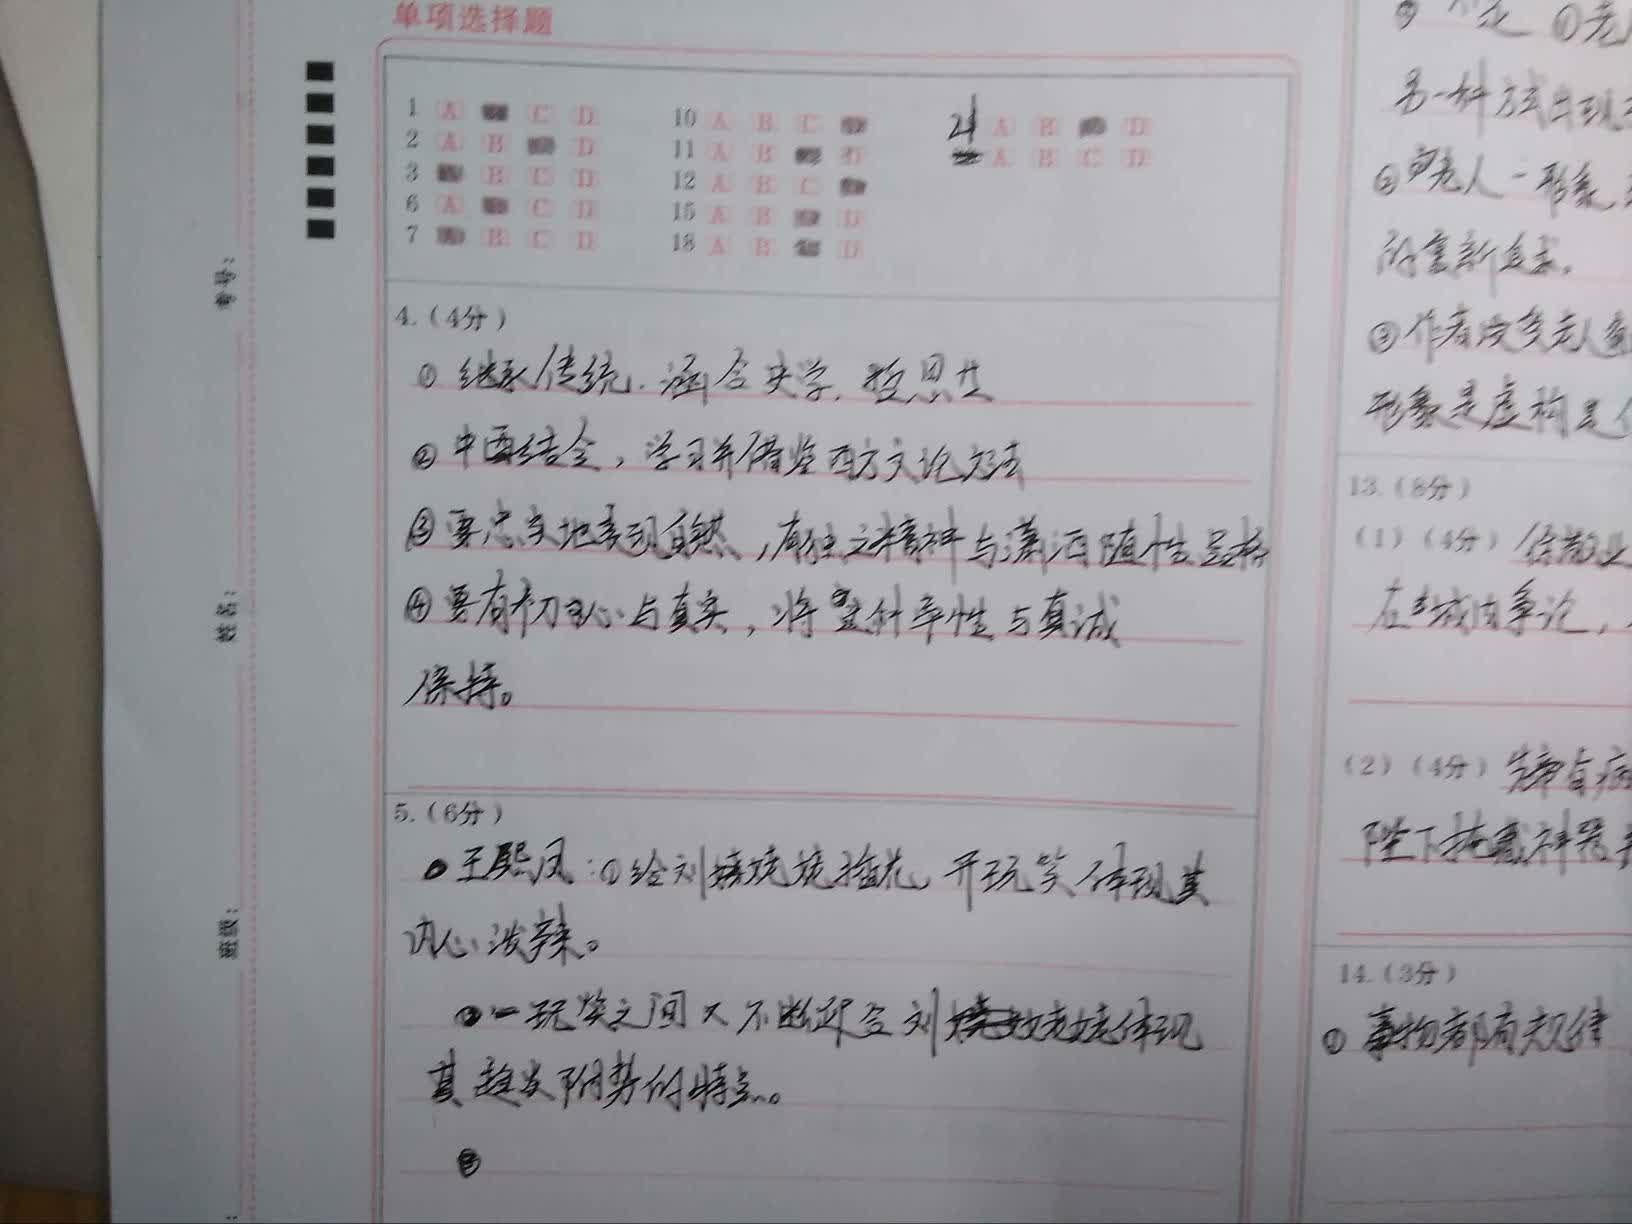 单项选择题
1 A C D
2 A B D
3 B C D
6 A C D
7 B C D
10 A B C
11 A B D
12 A B C
15 A B D
18 A B D
21 A B D
A B C D
学号:
姓名:
班级:
4.(4分)
①继承传统.涵含史学.哲思性
②中西结合,学习并借鉴西方文论方法
③要忠实地表现自然,有独立精神与潇洒随性品格
④要有初心与真实,将 率性与真诚
保持。
5.(6分)
王熙凤:①给刘姥姥插花,开玩笑体现其
内心泼辣。
②玩笑之间又不断 刘姥姥体现
其趋炎附势的特点。
①老
另一种方式出现
②老人一形象,
的重新追求。
③作者反复老人
形象是虚构是
13.(8分)
(1)(4分)徐敬业
在城内争论,
(2)(4分)先帝有病
陛下掩藏神器
14.(3分)
①事物都有规律